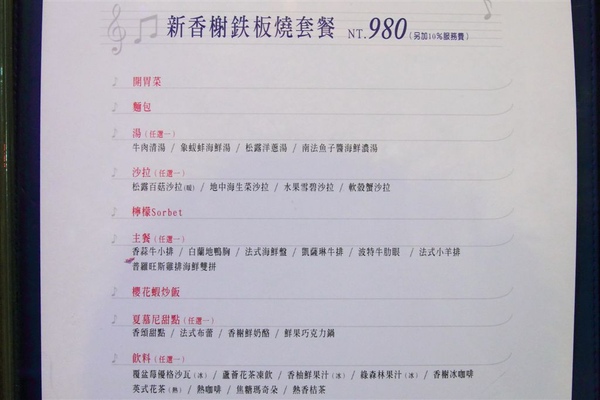 新香榭鉄板燒套餐 NT.980 (另加10%服務費)
開胃菜
麵包
湯(任選一)
牛肉清湯 / 象蚊蚌海鮮湯 / 松露洋蔥湯 / 南法魚子醬海鮮濃湯
沙拉(任選一)
松露百菇沙拉(暖) / 地中海生菜沙拉 / 水果雪碧沙拉 / 軟殼蟹沙拉
檸檬Sorbet
主餐(任選一)
香蒜牛小排 / 白蘭地鴨胸 / 法式海鮮盤 / 凱薩琳牛排 / 波特牛肋眼 / 法式小羊排
普羅旺斯雞排海鮮雙拼
櫻花蝦炒飯
夏慕尼甜點(任選一)
香頌甜點 / 法式布蕾 / 香榭鮮奶酪 / 鮮果巧克力鍋
飲料(任選一)
覆盆莓優格沙瓦(冰) / 蘆薈花茶凍飲 / 香柚鮮果汁(冰) / 綠森林果汁(冰) / 香榭冰咖啡
英式花茶(熱) / 熱咖啡 / 焦糖瑪奇朵 / 熱香桔茶